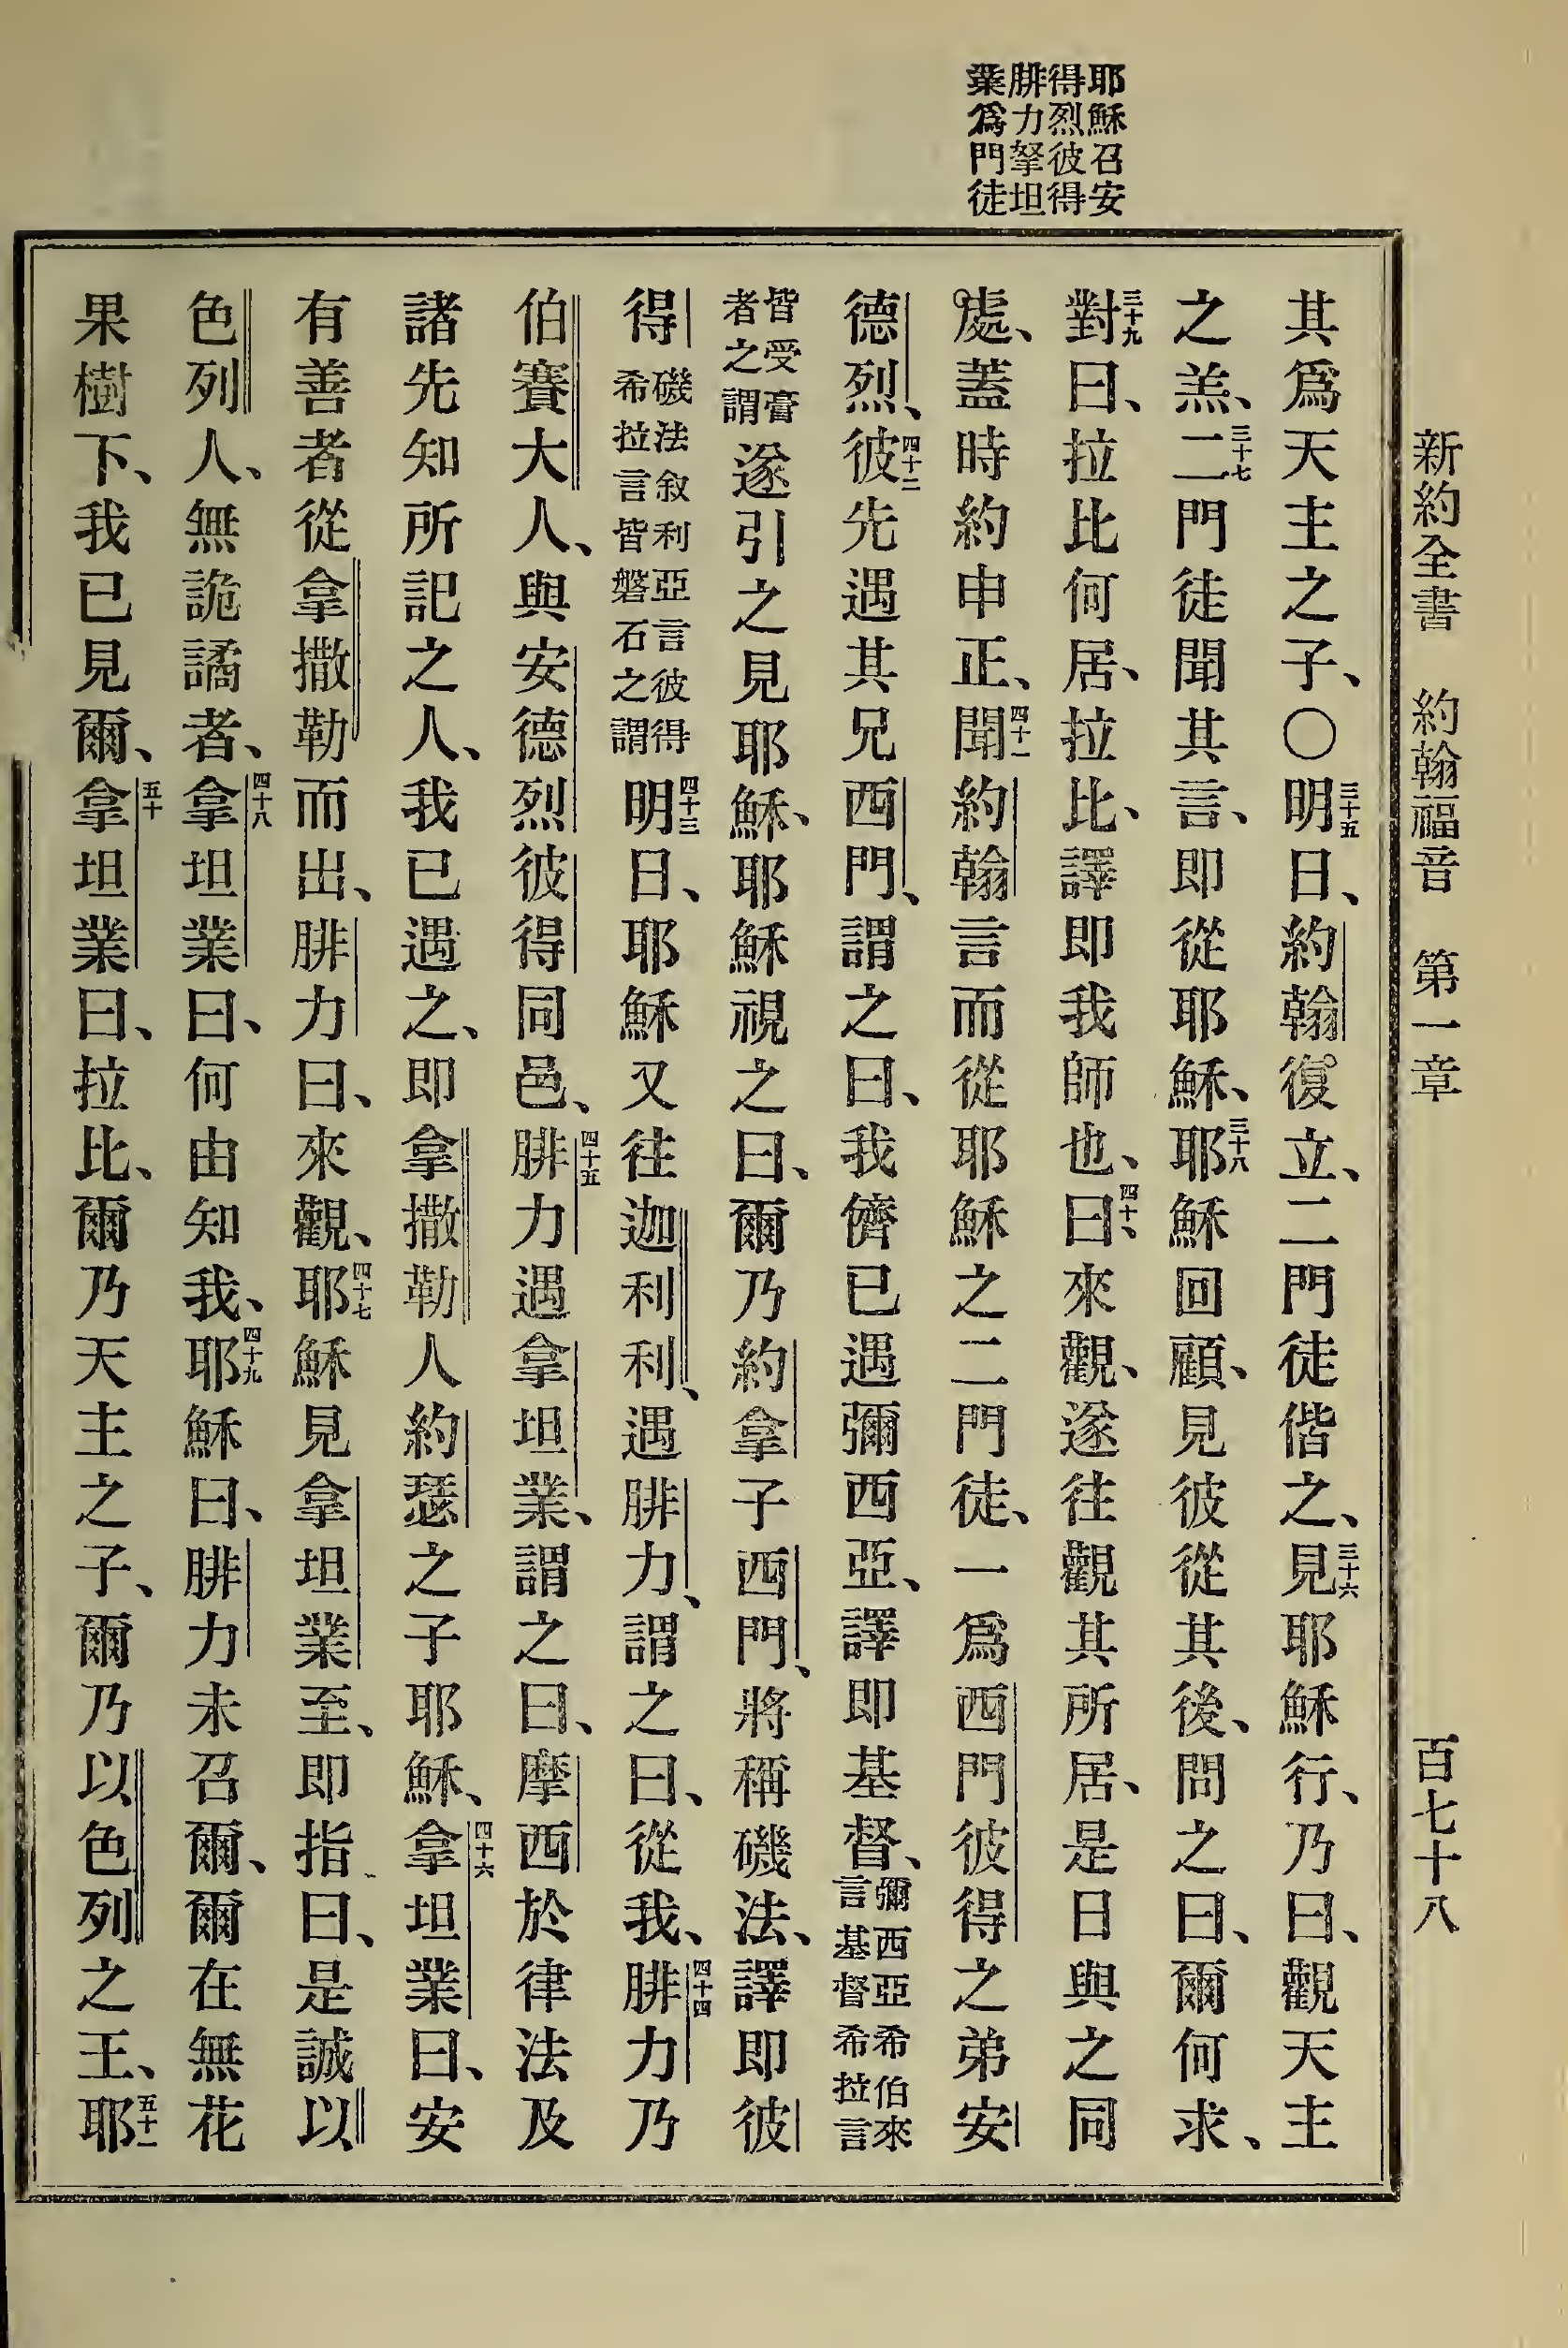 新約全書 約翰福音 第一章 百七十八
耶穌召安
得烈彼得
腓力拏坦
業爲門徒
其爲天主之子、〇三十五明日、約翰復立、二門徒偕之、三十六見耶穌行、乃曰、觀天主
之羔、三十七二門徒聞其言、即從耶穌、三十八耶穌回顧、見彼從其後、問之曰、爾何求、
三十九對曰、拉比何居、拉比、譯即我師也、四十曰、來觀、遂往觀其所居、是日與之同
處、蓋時約申正、四十一聞約翰言而從耶穌之二門徒、一爲西門彼得之弟安
德烈、四十二彼先遇其兄西門、謂之曰、我儕已遇彌西亞、譯即基督、彌西亞希伯來言基督希拉言
皆受膏者之謂遂引之見耶穌、耶穌視之曰、爾乃約拿子西門、將稱磯法、譯即彼
得磯法敘利亞言彼得希拉言皆磐石之謂四十三明日、耶穌又往迦利利、遇腓力、謂之曰、從我、四十四腓力乃
伯賽大人、與安德烈彼得同邑、四十五腓力遇拿坦業、謂之曰、摩西於律法及
諸先知所記之人、我已遇之、即拿撒勒人約瑟之子耶穌、四十六拿坦業曰、安
有善者從拿撒勒而出、腓力曰、來觀、四十七耶穌見拿坦業至、即指曰、是誠以
色列人、無詭譎者、四十八拿坦業曰、何由知我、四十九耶穌曰、腓力未召爾、爾在無花
果樹下、我已見爾、五十拿坦業曰、拉比、爾乃天主之子、爾乃以色列之王、五十一耶